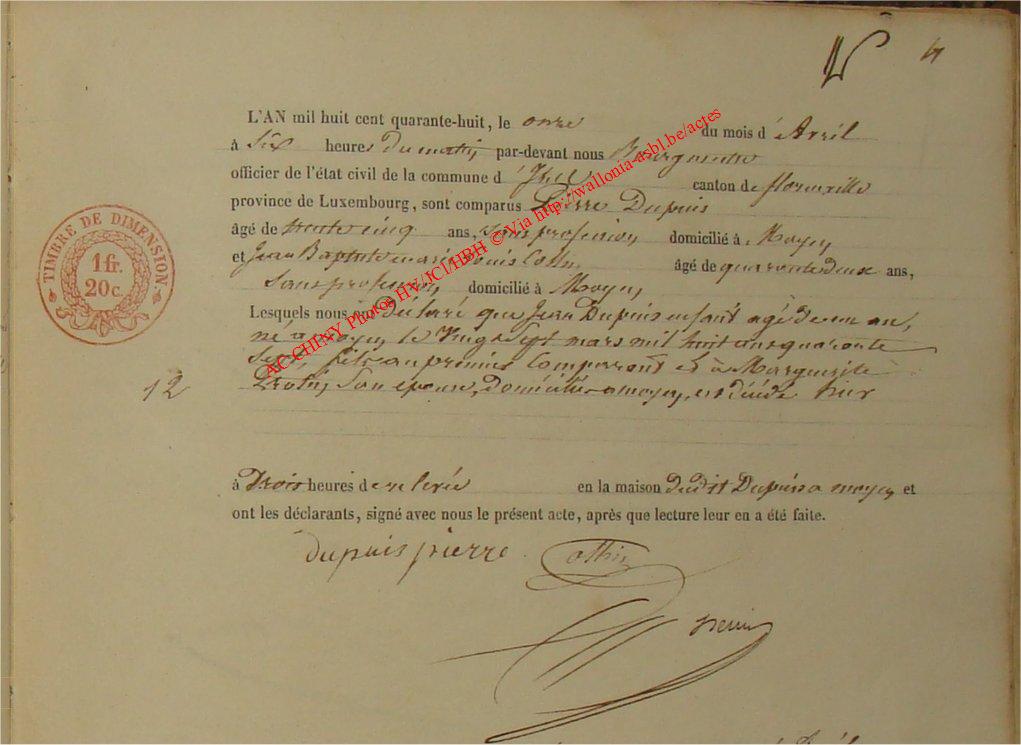 L'AN mil huit cent quarante-huit, le onze du mois d' Avril
à Six heures Du matin par-devant nous Bourgmestre
officier de l'état civil de la commune d' canton de florenville
province de Luxembourg, sont comparus Pierre Dupuis
âgé de trente cinq ans, sans profession, domicilié à Moyen
et Jean Baptiste marie Louis âgé de quarante deux ans,
Sans profession, domicilié à Moyen,
Lesquels nous ont Déclaré que Jean Dupuis enfant agé de un an,
né a moyen le Vingt Sept mars mil huit cent quarante
Sept, fils au premier Comparant et à Marguerite
12
Son épouse, Domiciliés a moyen, est décédé hier
à trois heures de relevée en la maison dudit Dupuis a moyen et
ont les déclarants, signé avec nous le présent acte, après que lecture leur en a été faite.
dupuis pierre
TIMBRE DE DIMENSION
1 fr.
20 c.
ACCHINY Photo HVJCI/HBH © Via http://wallonia-asbl.be/actes